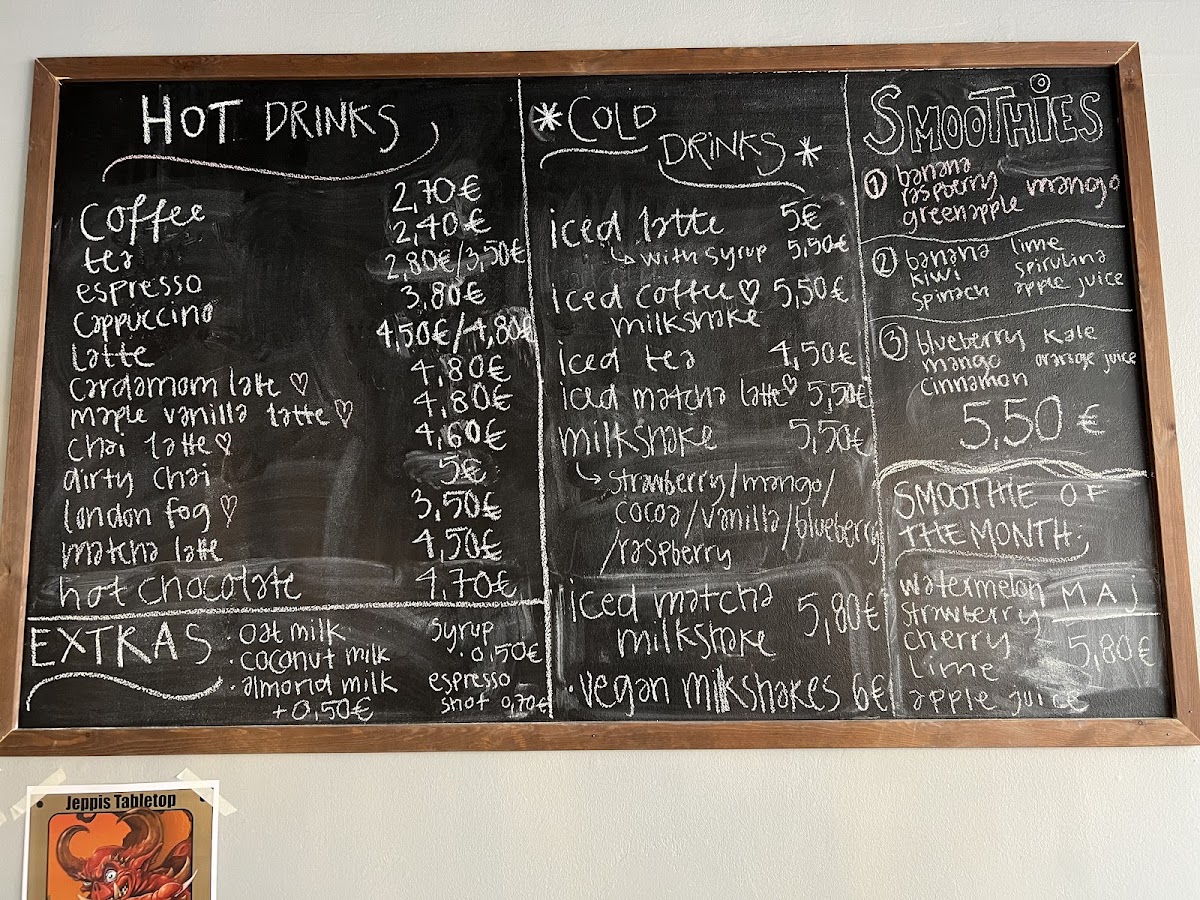 HOT DRINKS
coffee 2,70€
tea 2,40€
espresso 2,80€/3,50€
cappuccino 3,80€
latte 4,50€/4,80€
cardamom latte ♡ 4,80€
maple vanilla latte ♡ 4,80€
chai latte ♡ 4,60€
dirty chai 5€
london fog ♡ 3,50€
matcha latte 4,50€
hot chocolate 4,70€
EXTRAS
· oat milk
· coconut milk
· almond milk
+0,50€
syrup
0,50€
espresso
shot 0,70€
*COLD
DRINKS*
iced latte 5€
↳ with syrup 5,50€
iced coffee ♡ 5,50€
milkshake
iced tea 4,50€
iced matcha latte ♡ 5,50€
milkshake 5,50€
↳ strawberry/mango/
cocoa/vanilla/blueberry
/raspberry
iced matcha 5,80€
milkshake
· vegan milkshakes 6€
SMOOTHiES
① banana
raspberry mango
greenapple
② banana lime
kiwi spirulina
spinach apple juice
③ blueberry kale
mango orange juice
cinnamon
5,50€
SMOOTHIE OF
THE MONTH:
watermelon MAj
strawberry
cherry 5,80€
lime
apple juice
Jeppis Tabletop